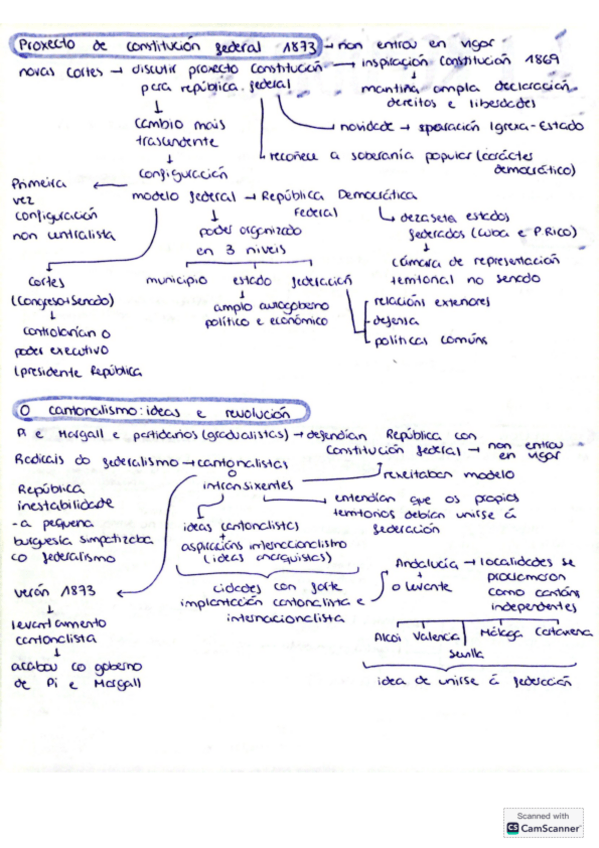 Proxecto de constitución federal 1873 → non entrou en vigor
novas cortes → discutir proxecto constitución → inspiración constitución 1869
para república federal
mantiña ampla declaración
dereitos e liberdades
cambio máis
trascendente
novidade → separación Igrexa-Estado
recoñece a soberanía popular (carácter
democrático)
configuración
modelo federal → República Democrática
Federal
Primeira
vez
configuración
non centralista
poder organizado
en 3 niveis
dezasete estados
federados (Cuba e P.Rico)
cámara de representación
territorial no senado
Cortes
(Congreso+Senado)
controlarían o
poder executivo
(presidente República
municipio estado federación
amplo autogoberno
político e económico
relacións exteriores
defensa
políticas comúns
O cantonalismo: ideas e revolución
Pi e Margall e partidarios (gradualistas) → defendían República con
Constitución federal → non entrou
en vigor
Radicais do federalismo → cantonalistas
o
intransixentes
rexeitaban modelo
entendían que os propios
territorios debían unirse á
federación
República
inestabilidade
- a pequena
burguesía simpatizaba
co federalismo
ideas cantonalistas
+
aspiracións internacionalismo
(ideas anarquistas)
cidades con forte
implantación cantonalista e
internacionalista
Andalucía → localidades se
+
o levante
proclamaron
como cantóns
independentes
Alcoi Valencia Málaga Cartaxena
Sevilla
idea de unirse á federación
verán 1873
levantamento
cantonalista
acabou co goberno
de Pi e Margall
Scanned with
CS CamScanner